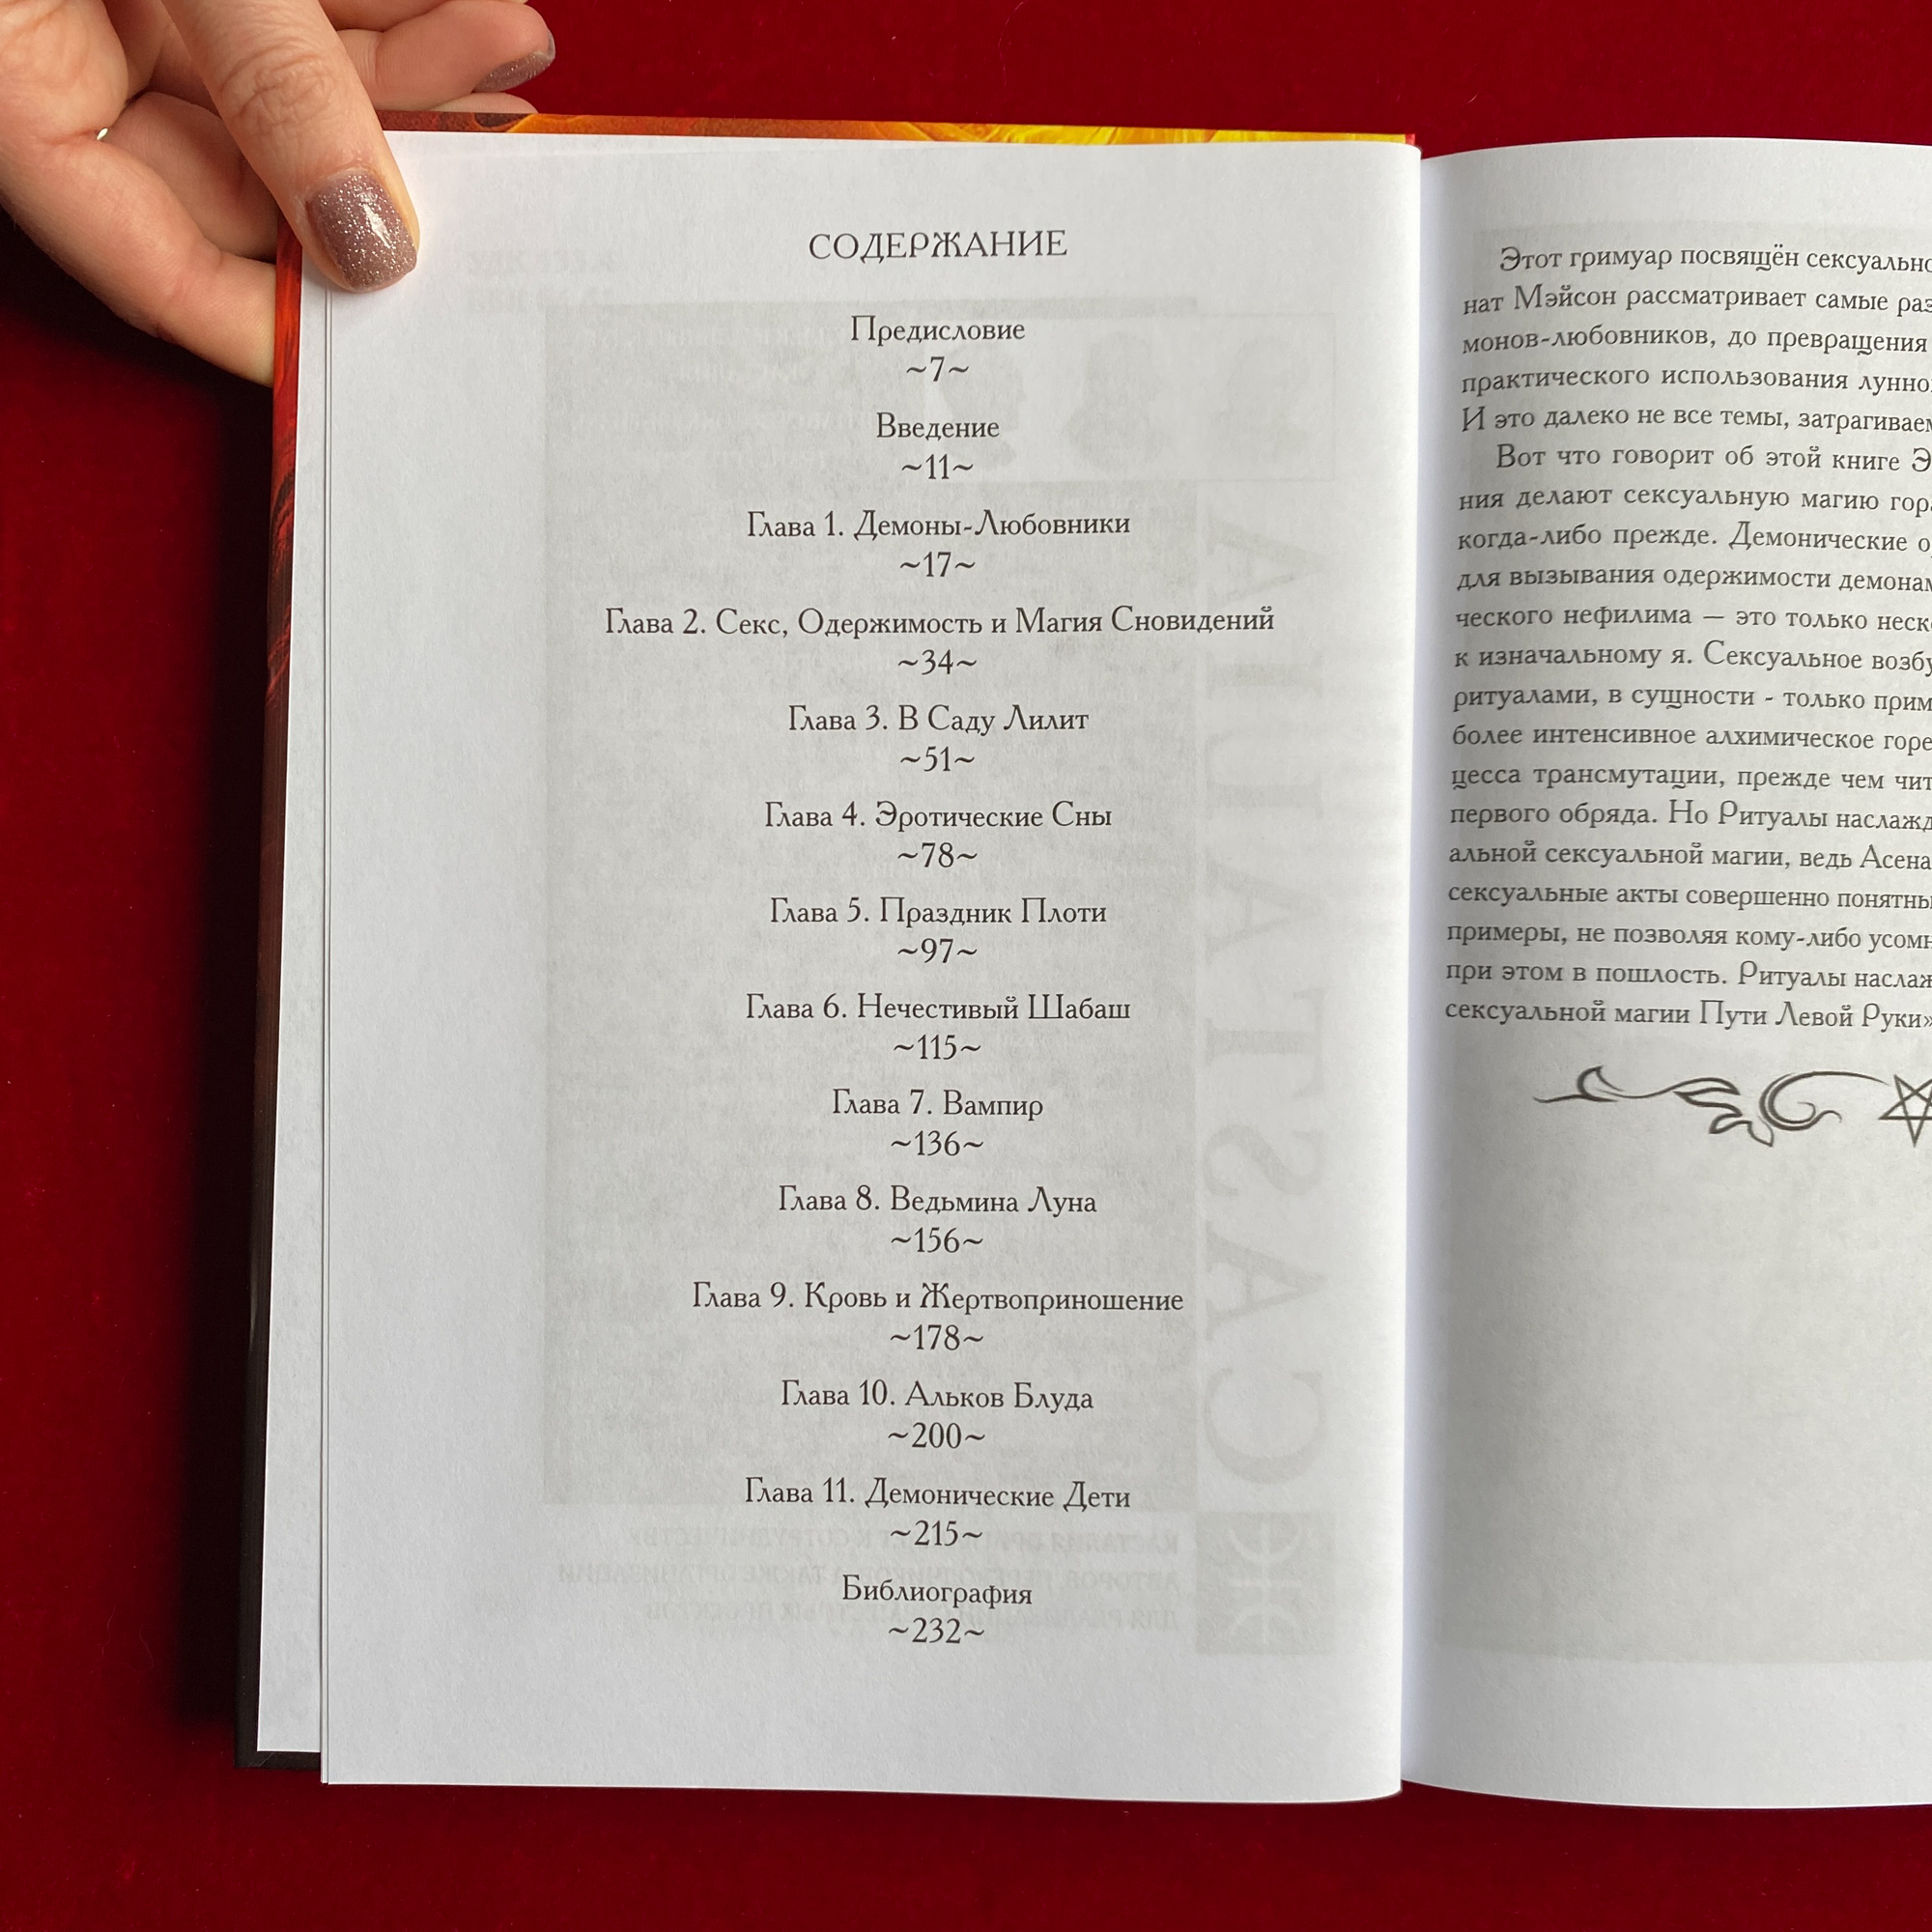 СОДЕРЖАНИЕ
Предисловие
~7~
Введение
~11~
Глава 1. Демоны-Любовники
~17~
Глава 2. Секс, Одержимость и Магия Сновидений
~34~
Глава 3. В Саду Лилит
~51~
Глава 4. Эротические Сны
~78~
Глава 5. Праздник Плоти
~97~
Глава 6. Нечестивый Шабаш
~115~
Глава 7. Вампир
~136~
Глава 8. Ведьмина Луна
~156~
Глава 9. Кровь и Жертвоприношение
~178~
Глава 10. Альков Блуда
~200~
Глава 11. Демонические Дети
~215~
Библиография
~232~
Этот гримуар посвящён
нат Мэйсон рассматривает самые
монов-любовников, до превращения
практического использования
И это далеко не все темы,
Вот что говорит об этой книге
ния делают сексуальную магию
когда-либо прежде. Демонические
для вызывания одержимости
ческого нефилима — это только
к изначальному я. Сексуальное
ритуалами, в сущности - только
более интенсивное алхимическое
цесса трансмутации, прежде чем
первого обряда. Но Ритуалы
альной сексуальной магии, ведь
сексуальные акты совершенно
примеры, не позволяя кому-либо
при этом в пошлость. Ритуалы
сексуальной магии Пути Левой Руки»